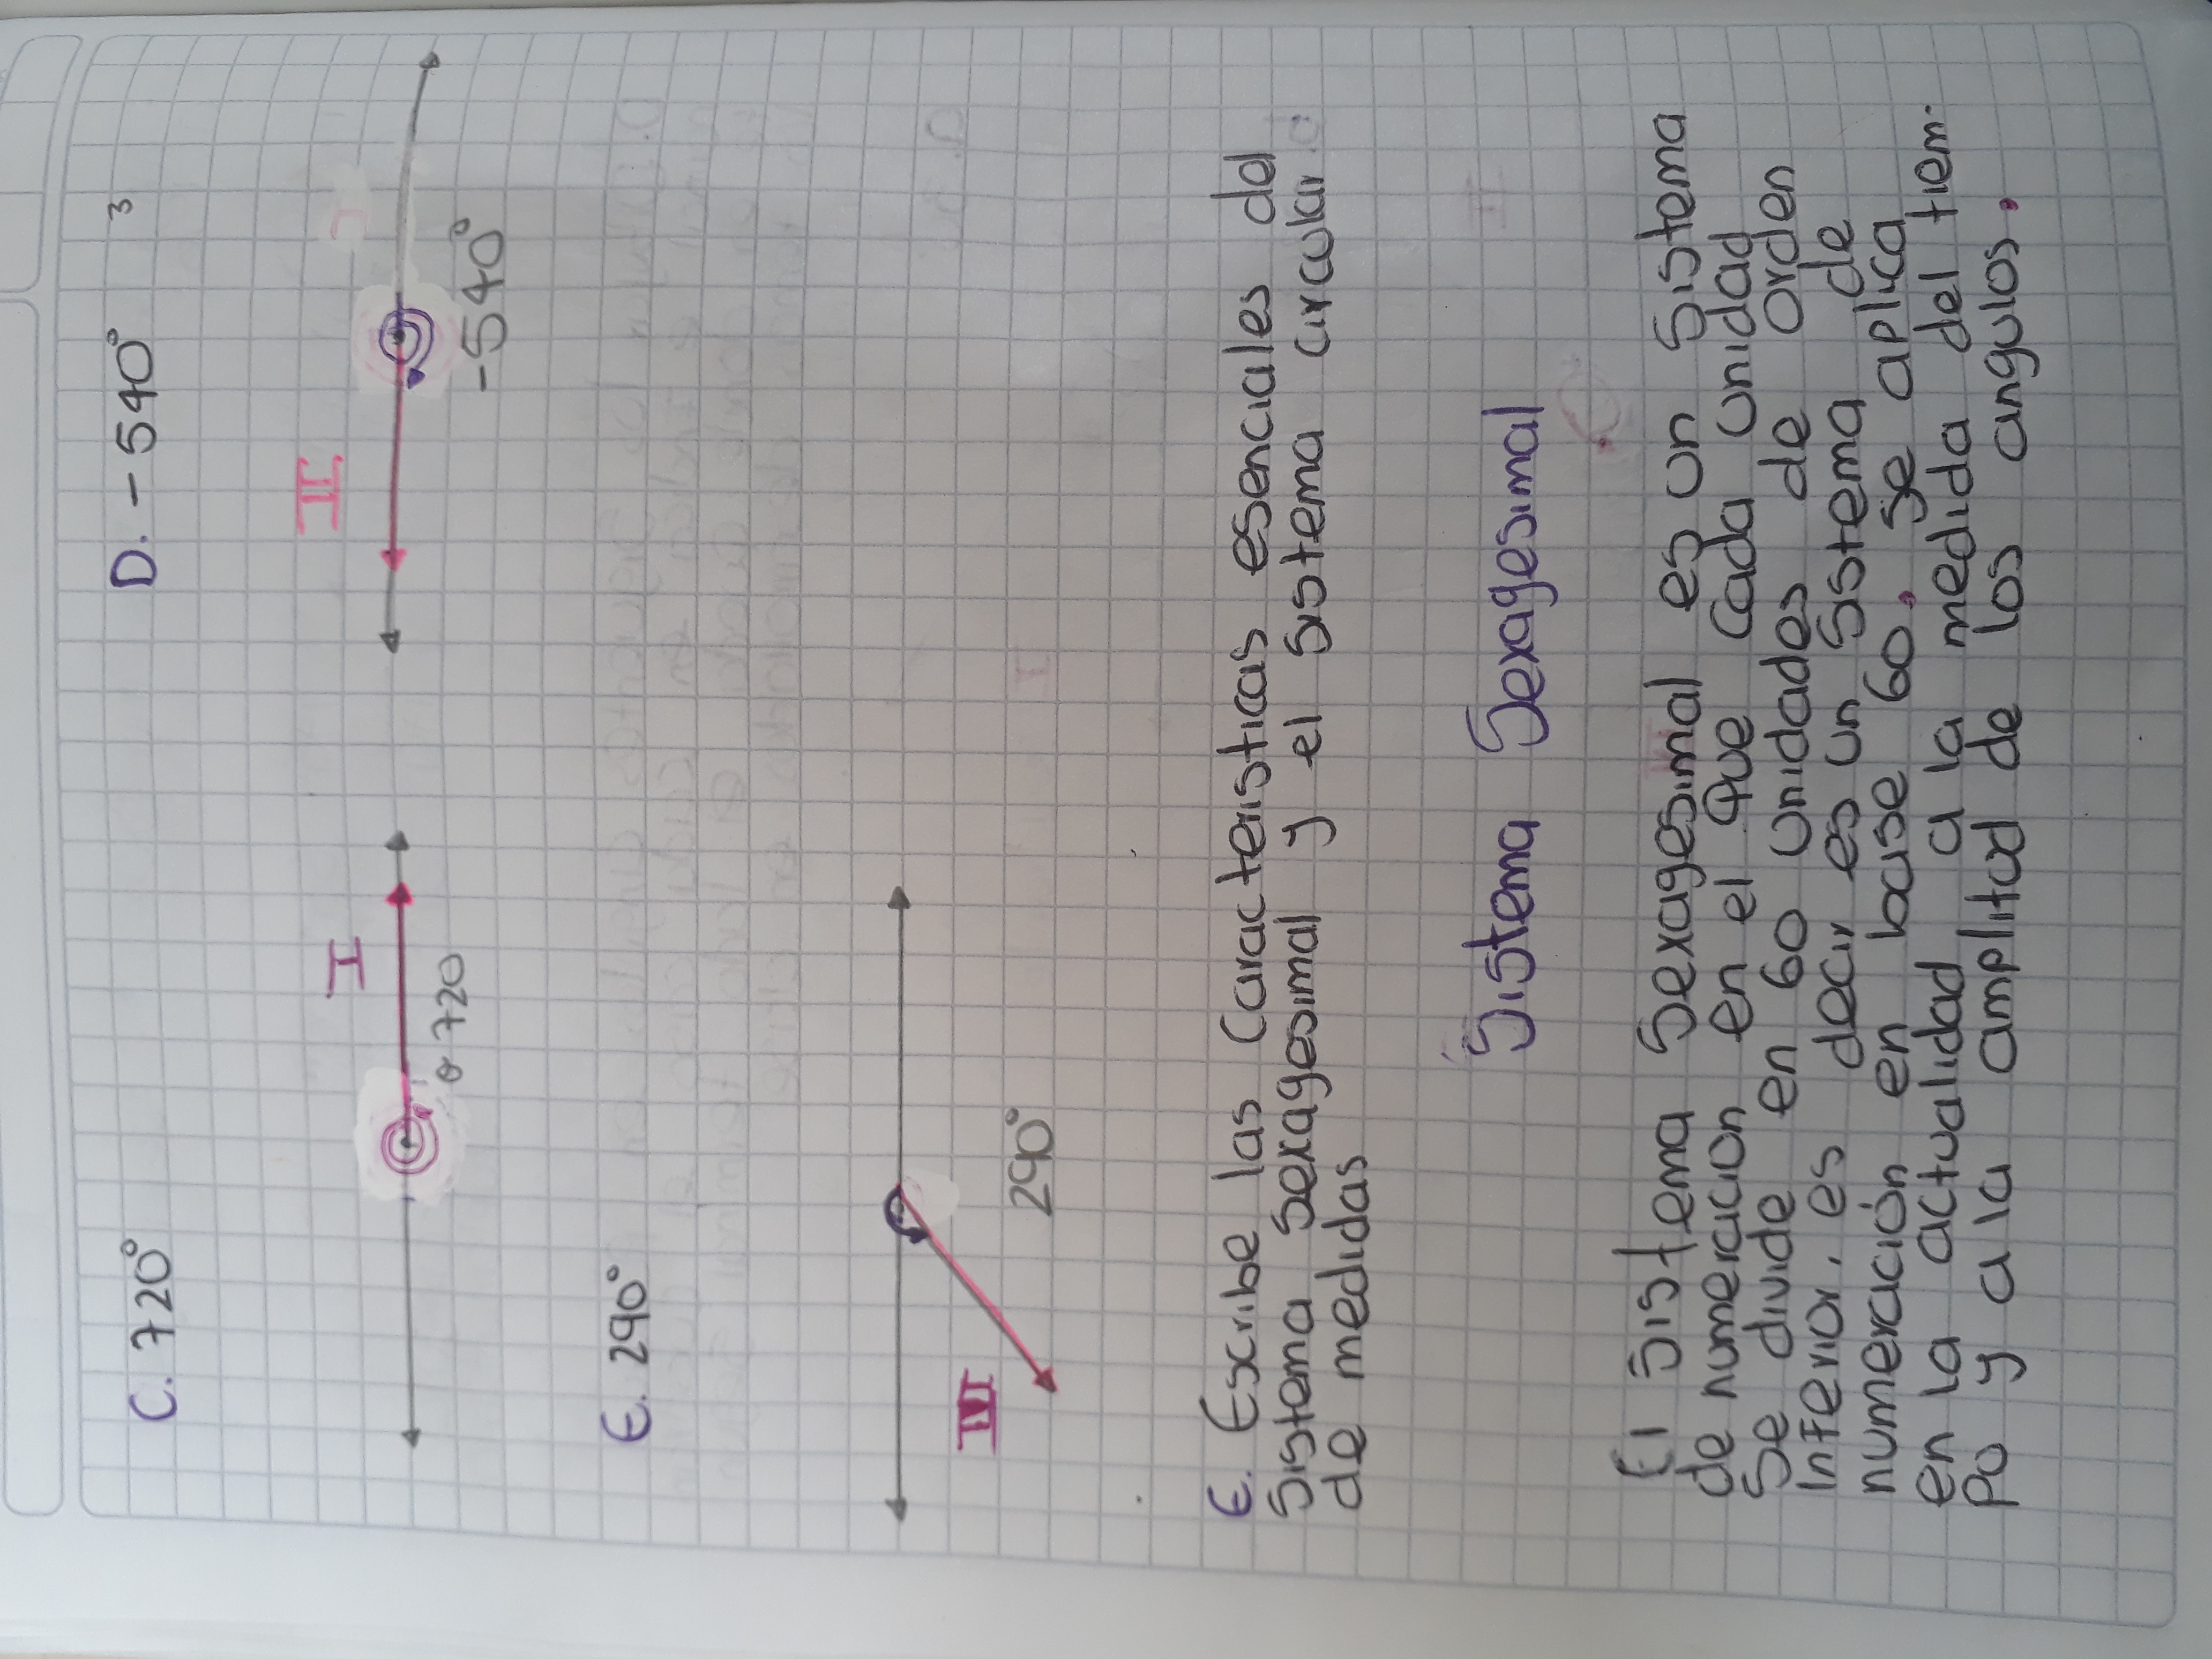 C. 720°
D. -540°
3
I
II
θ 720
-540°
E. 290°
IV
290°
E. Escribe las Caracteristicas esenciales del
Sistema Sexagesimal y el sistema circular
de medidas
Sistema Sexagesimal
El Sistema Sexagesimal es un Sistema
de numeracion en el que Cada unidad
Se divide en 60 unidades de orden
Inferior, es decir es un Sistema de
numeración en base 60. Se aplica
en la actualidad a la medida del tiem-
po y a la amplitud de los angulos.